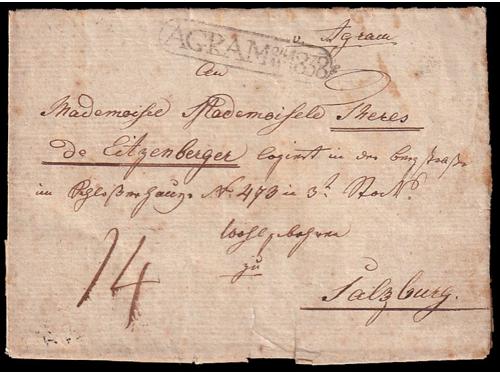 v. Agram
AGRAM 1838
An
Mademoisel Mademoisele Theres
de Eitzenberger logiert in der bergstraße
im Schloßerhauße No. 473 in 3t Stock
Wohlgebohren
zu
Salzburg.
14